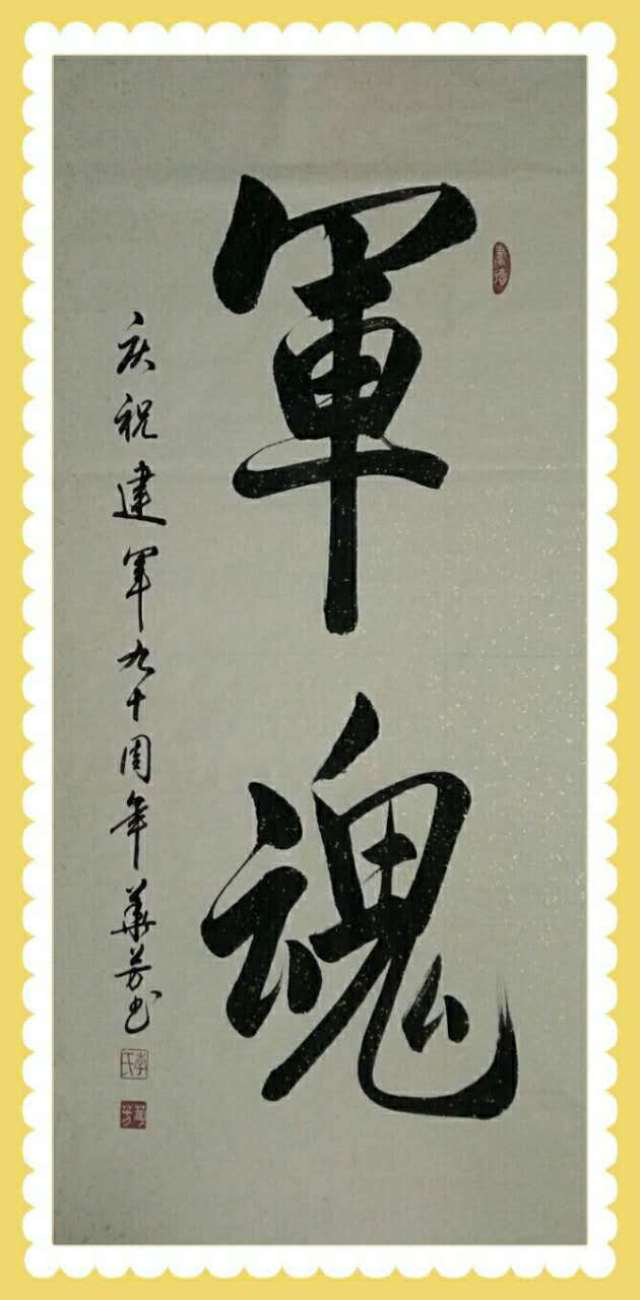 軍魂
庆祝建军九十周年華芳书
李氏
華芳